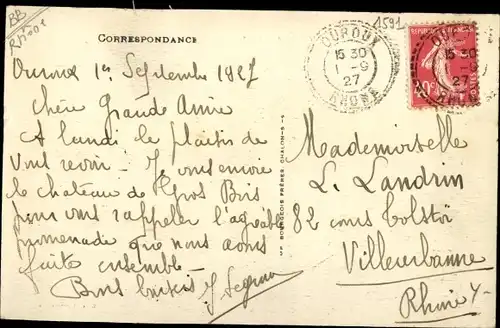 BB
Rhône
1591
CORRESPONDANCE
OUROUX
15 30
1 - 9
27
RHONE
OUROUX
15 30
1 - 9
27
RHONE
40c
Ouroux 1er Septembre 1927
Chère Grande Amie
A lundi le plaisir de
vous revoir - Je vous envoie
le chateau de Gros Bois
pour vous rappeler l'agréable
promenade que nous avons
faite ensemble -
Bons baisers
IMP. BOURGEOIS FRÈRES, CHALON-S-S
Mademoiselle
L. Landrin
82 cours Tolstoï
Villeurbanne
Rhône